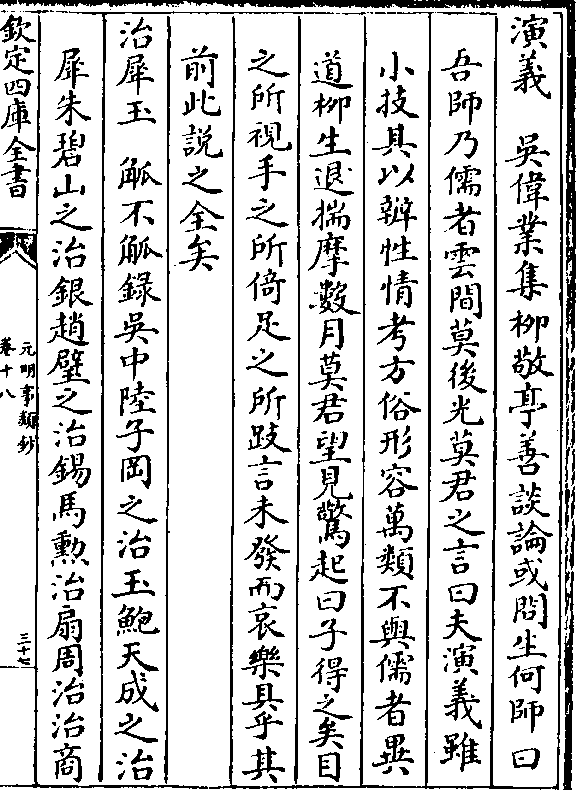 演義　吳偉業集柳敬亭善談論或問生何師曰
吾師乃儒者雲間莫後光莫君之言曰夫演義雖
小技其以辧性情考方俗形容萬類不與儒者異
道柳生退揣摩數月莫君望見驚起曰子得之矣目
之所視手之所倚足之所跂言未發而哀樂具乎其
前此說之全矣
治犀玉　觚不觚錄吳中陸子岡之治玉鮑天成之治
犀朱碧山之治銀趙壁之治錫馬勲治扇周治治商
欽定四庫全書
元明事類鈔
卷十八
三十七